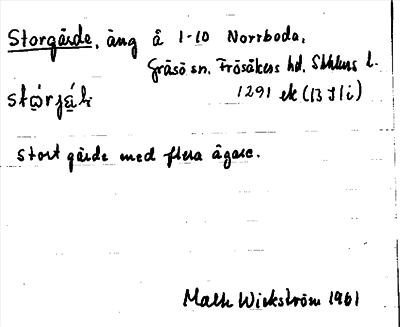 Storgärde, äng å 1-10 Norrboda,
Gräsö sn. Frösåkers hd. Sthlms l.
1291 ek (13 I 1 i)
stort gärde med flera ägare.
Mats Wickström 1961